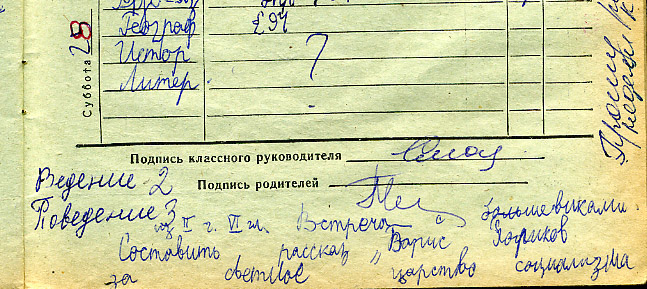 Суббота 28
Географ § 94
Истор 7
Литер.
Подпись классного руководителя
Ведение - 2
Подпись родителей
Поведение 3
из II г. VI гл. Встреча с большевиками.
Составить рассказ „Борис Гориков
за светлое царство социализма
Прошу